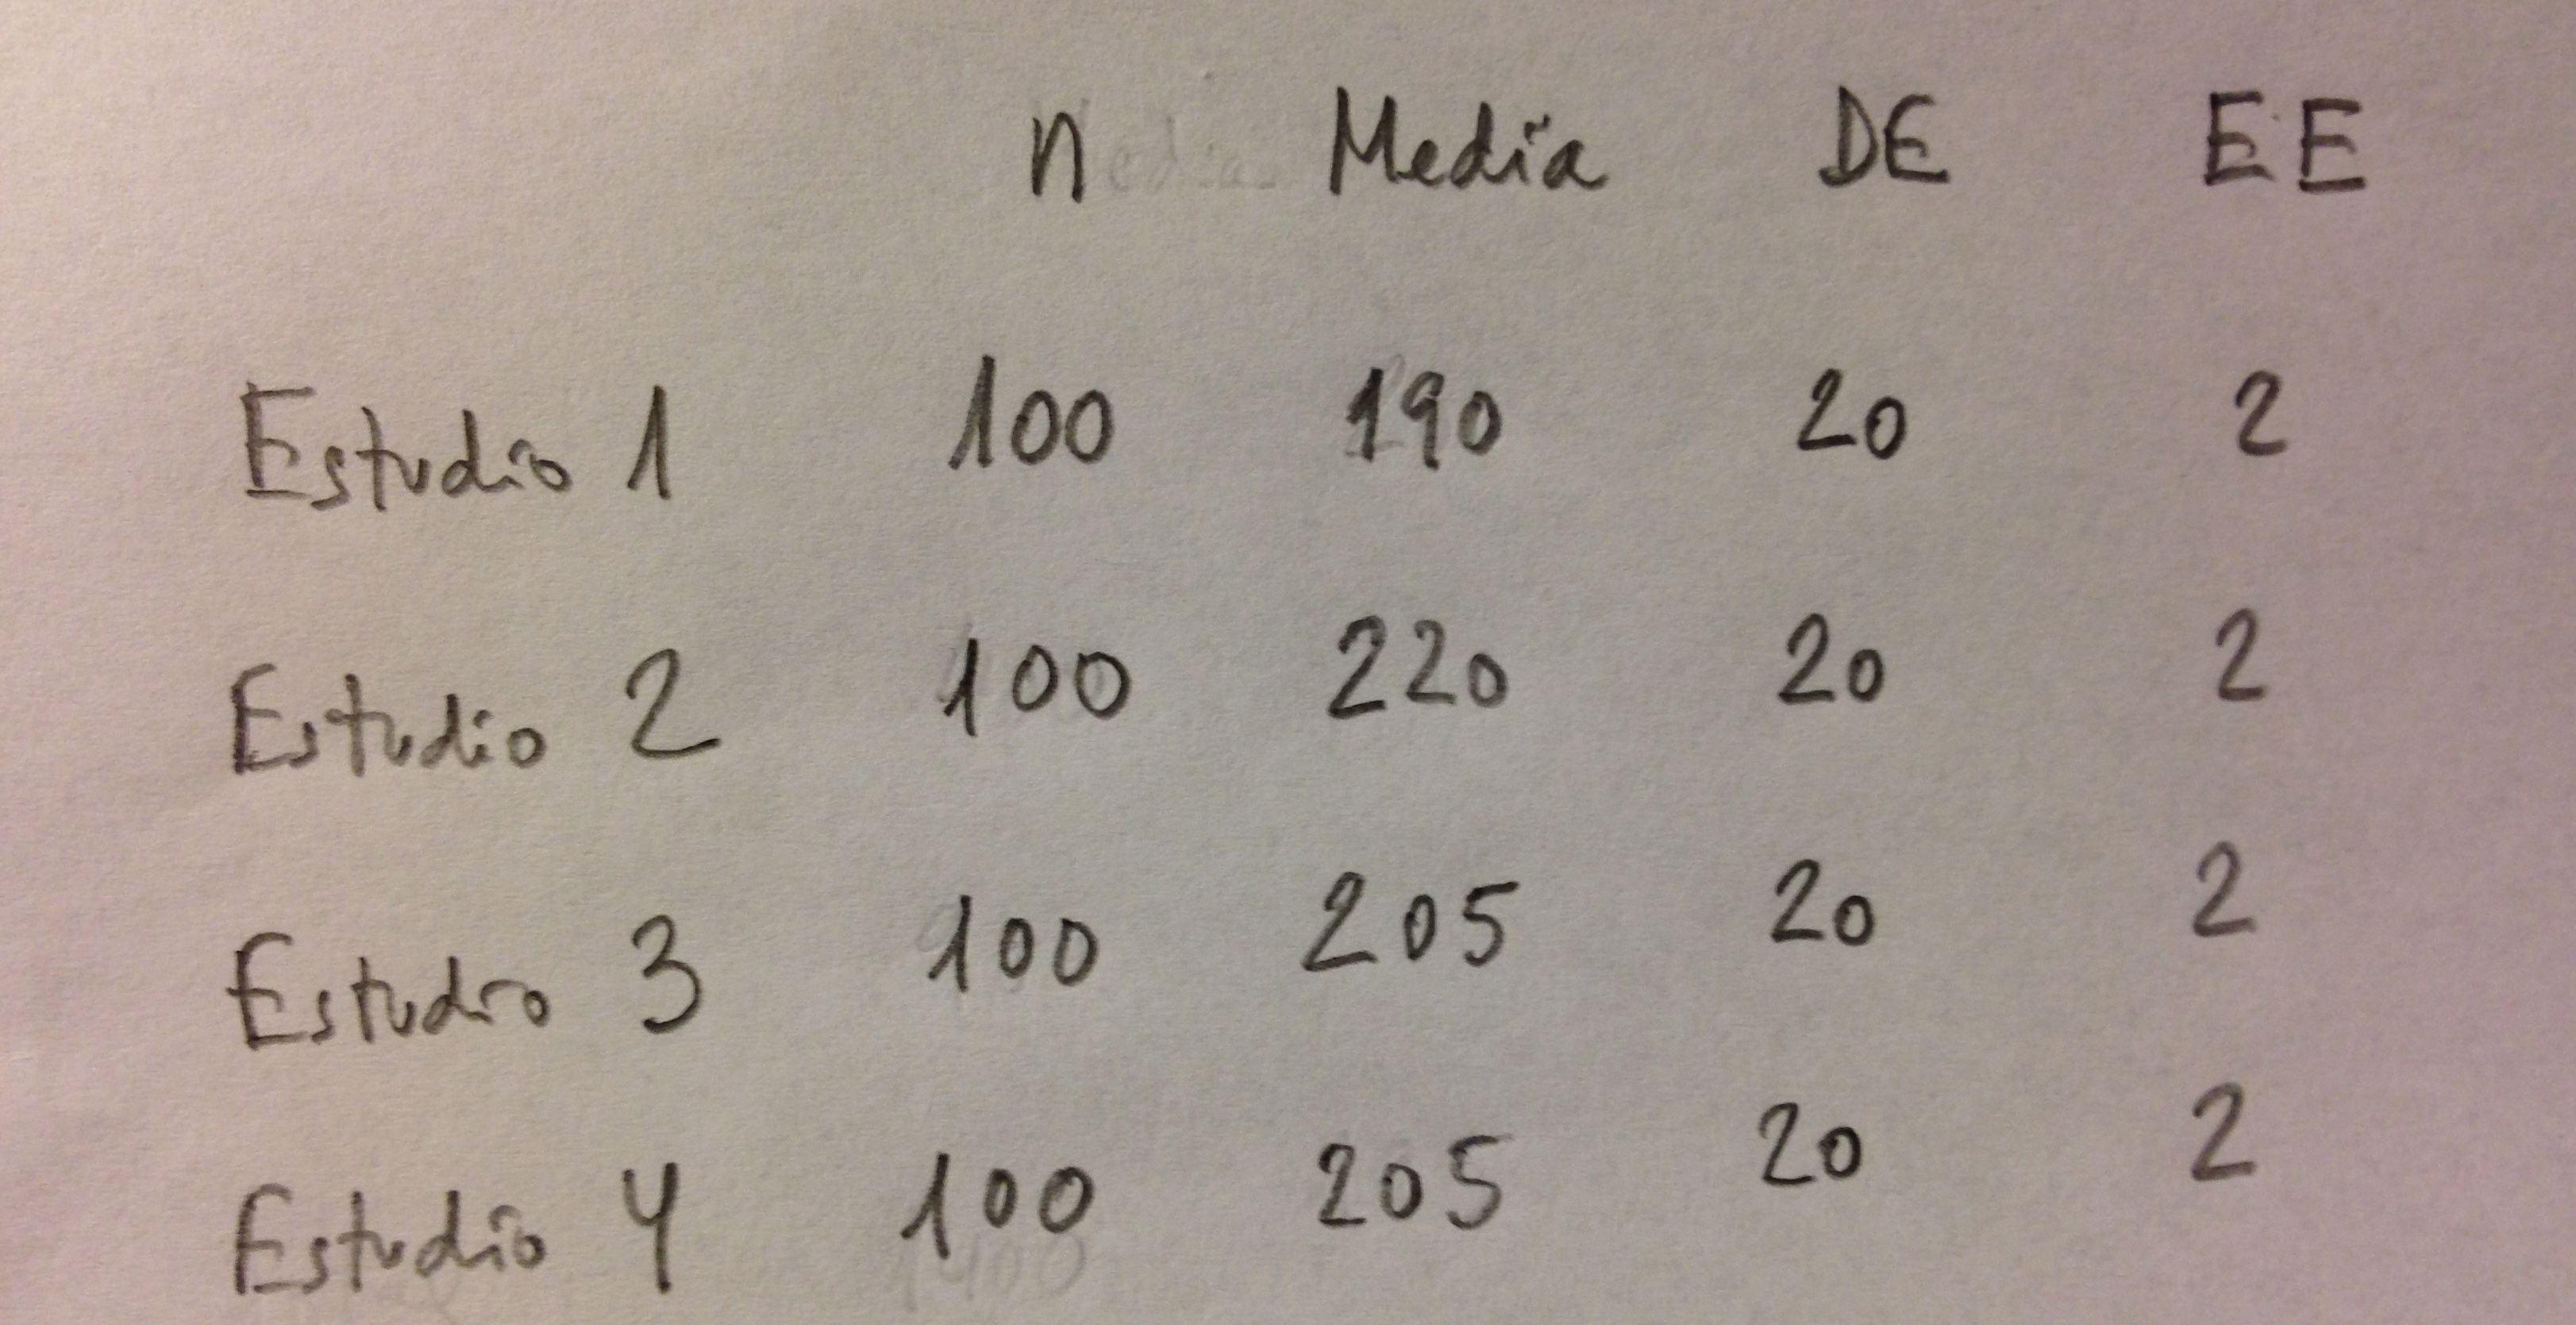 n Media DE EE
Estudio 1 100 190 20 2
Estudio 2 100 220 20 2
Estudio 3 100 205 20 2
Estudio 4 100 205 20 2